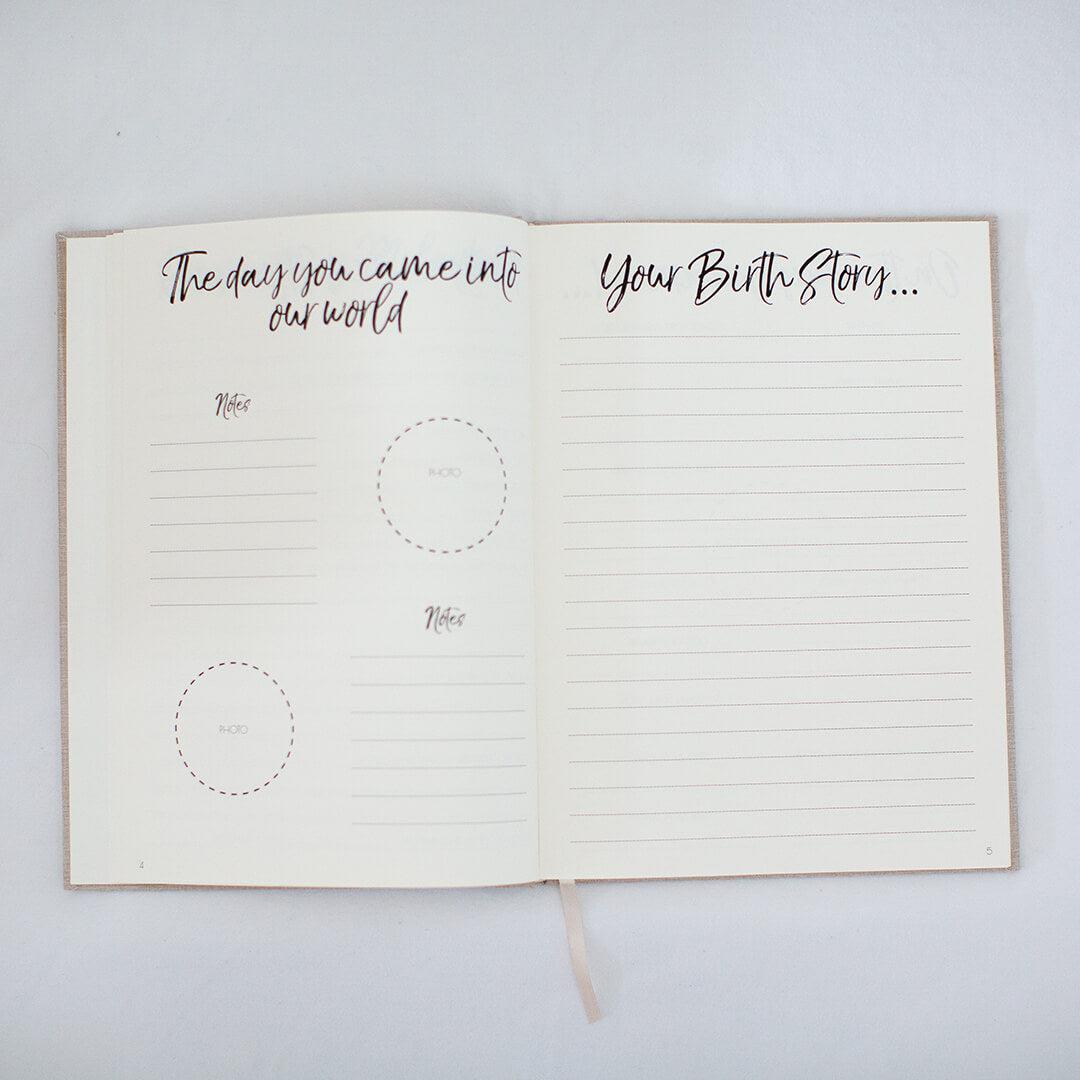 The day you came into
our world
Notes
PHOTO
Notes
PHOTO
4
Your Birth Story...
5